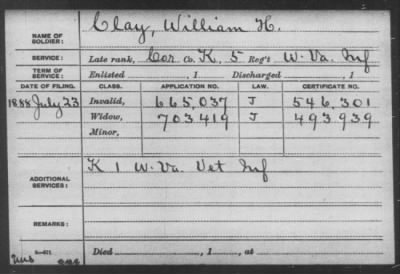 NAME OF SOLDIER: Clay, William H.
SERVICE: Late rank, Cor Co. K, 5 Reg't W. Va. Inf
TERM OF SERVICE: Enlisted , 1 Discharged , 1
DATE OF FILING. CLASS. APPLICATION NO. LAW. CERTIFICATE NO.
1888 July 23 Invalid, 665,037 J 546,301
Widow, 703419 J 493939
Minor,
ADDITIONAL SERVICES: K 1 W. Va. Vet Inf
REMARKS:
Died , 1 , at